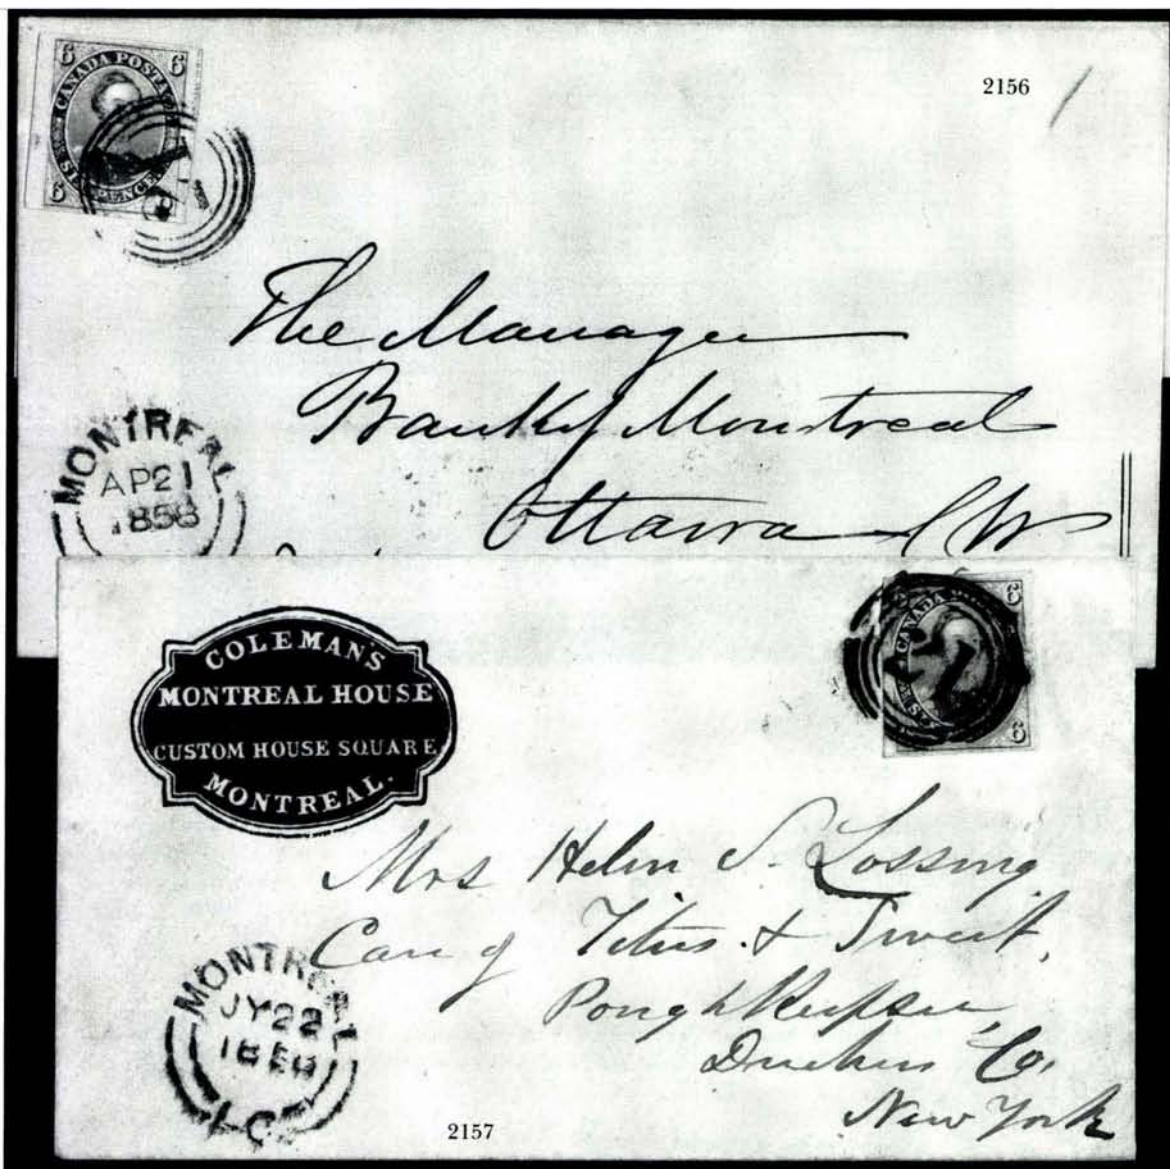 6 6
CANADA POSTA
6
PENCE
2156
The Manager
Bank of Montreal
Ottawa CW
MONTREAL
AP 21
1858
COLEMAN'S
MONTREAL HOUSE
CUSTOM HOUSE SQUARE
MONTREAL.
6
CANADA
6
Mrs Helen S. Lossing
Care of Titus & Sweet,
Poughkeepsie,
Duchess Co,
New York
MONTREAL
JY 22
L.C.
2157